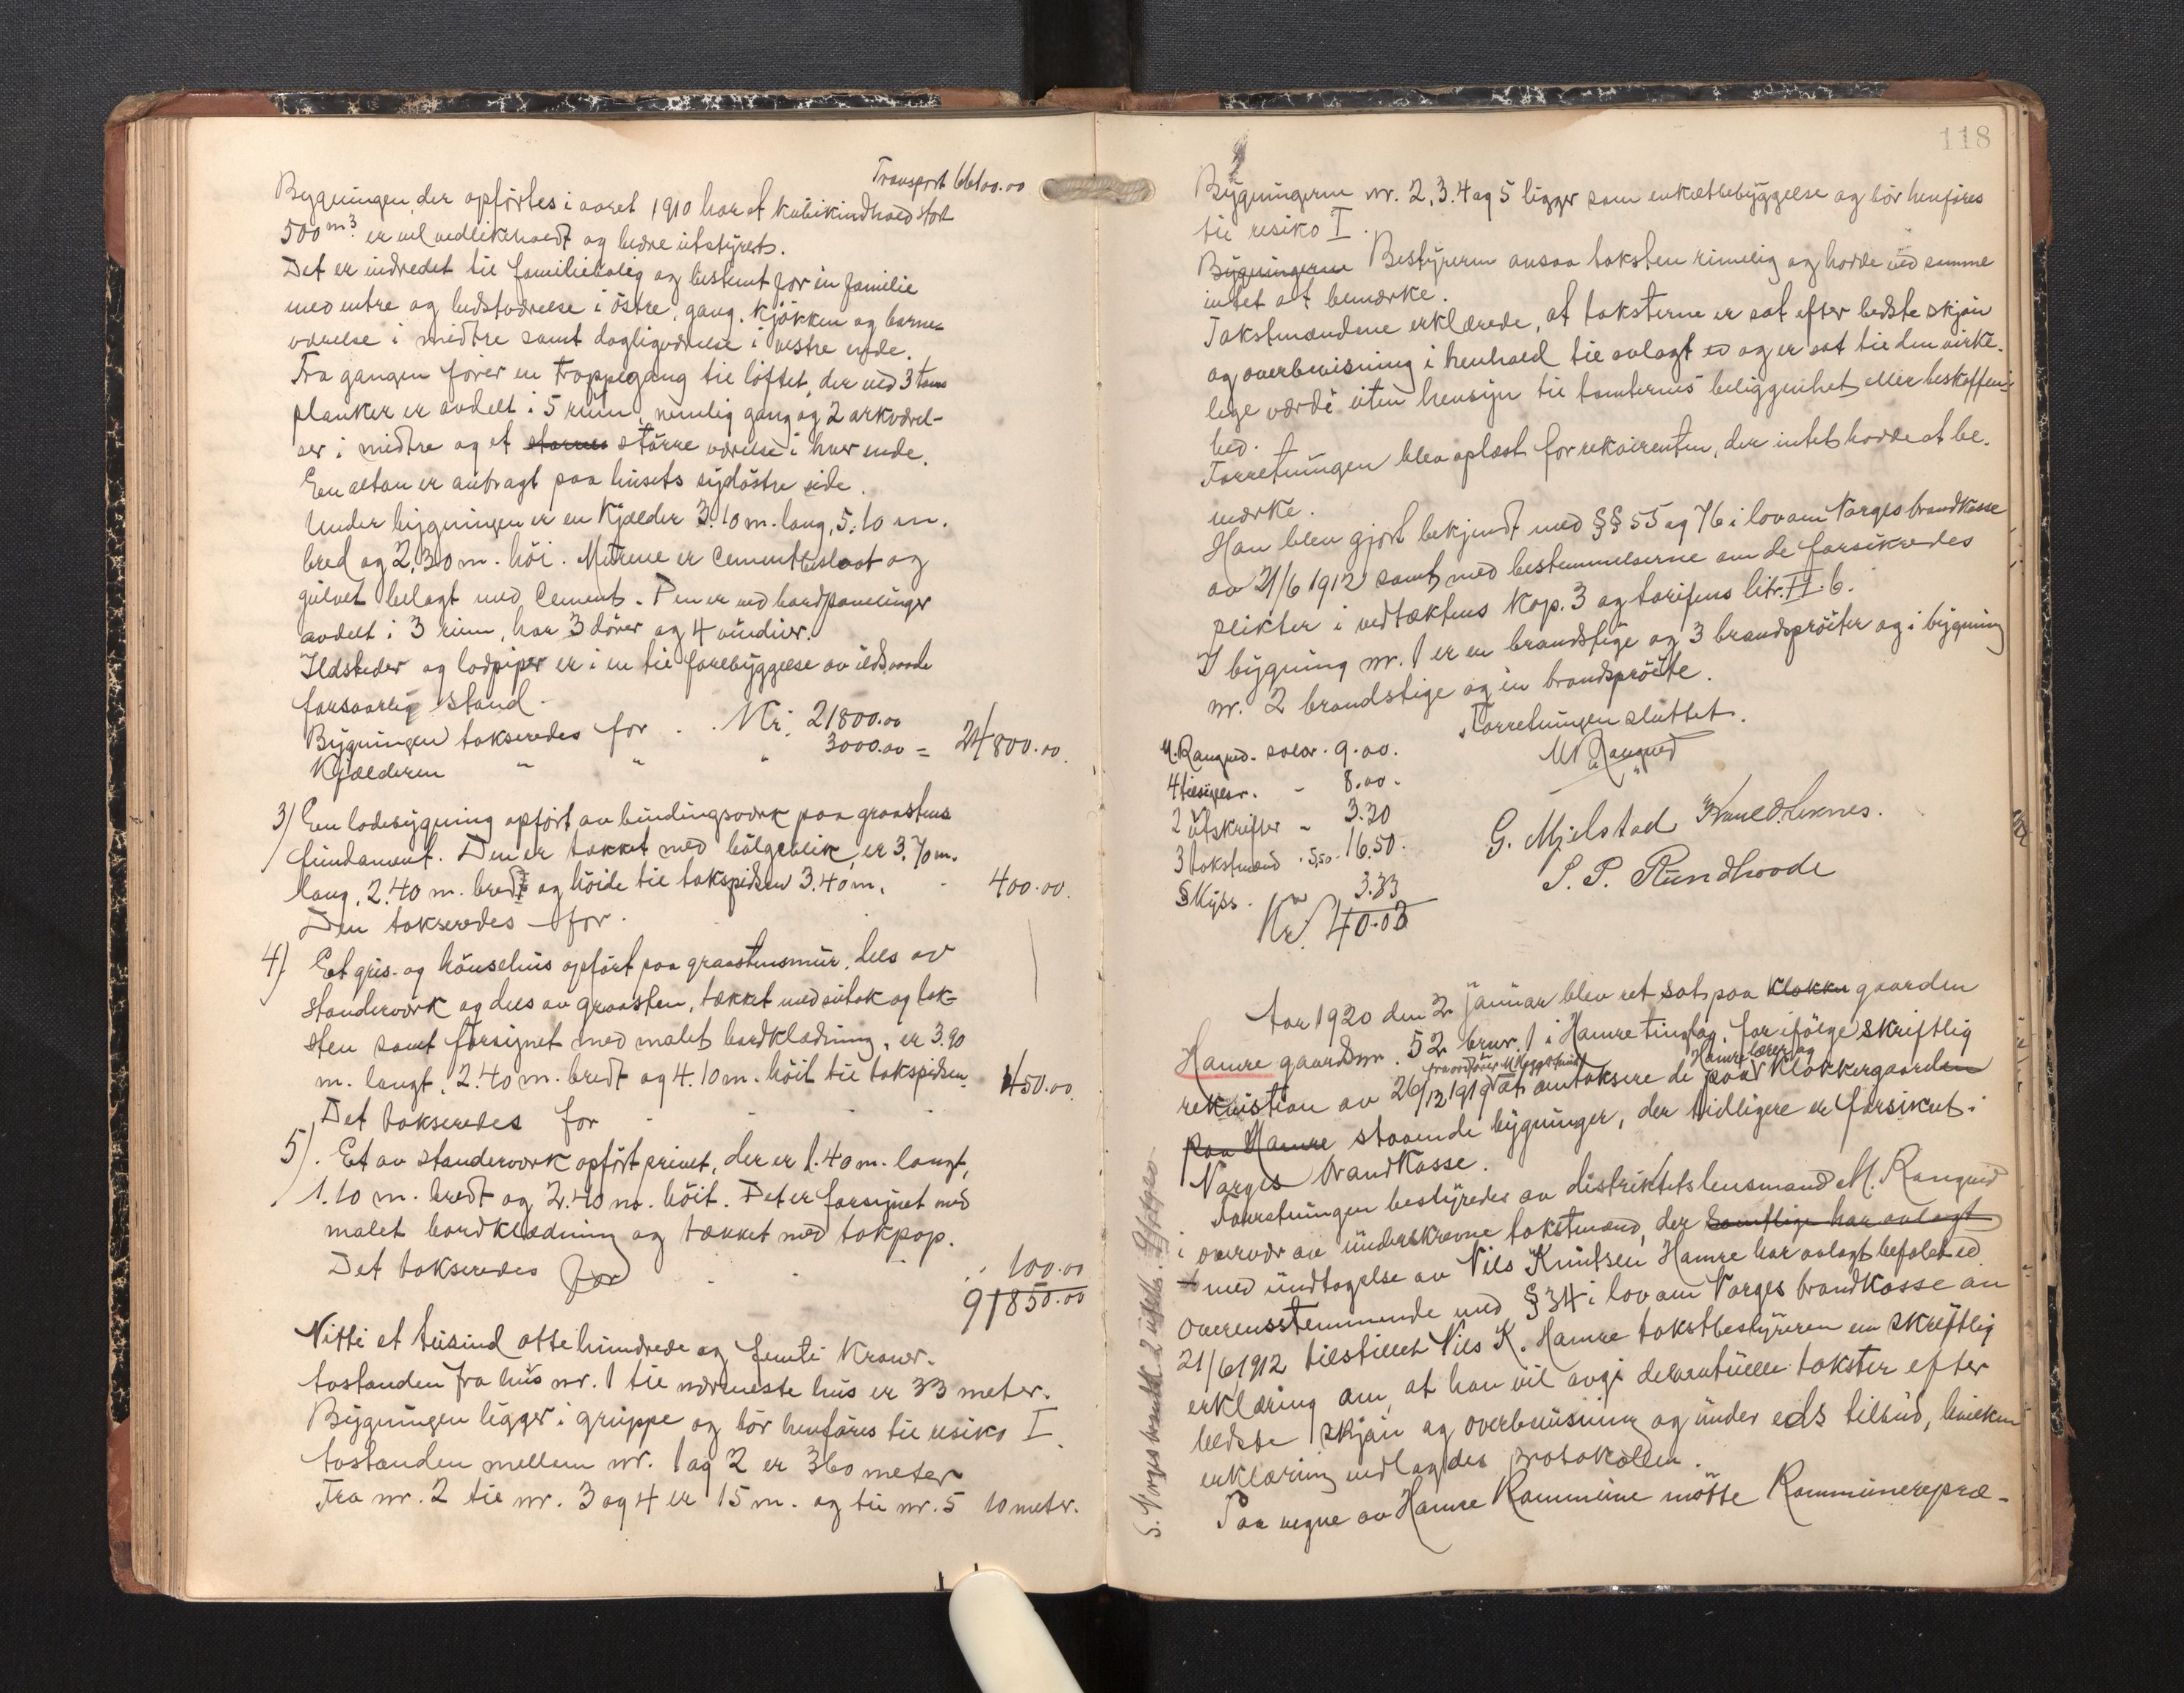 Transport 66100.00
Bygningen, der opførtes i aaret 1910 har et kubikindhold stort
500 m³ er vel vedlikeholdt og bedre utstyrets.
Det er indredet til familiebolig og bestemt for en familie
med entre og bedstværelse i østre, gang, kjøkken og barne-
værelse i midtre samt dagligværelse i vestre ende.
Fra gangen fører en trappegang til loftet, der ved 3 toms
planker er avdelt i 5 rum, nemlig gang og 2 arkværel-
ser i midtre og et større værelse i hver ende.
En altan er anbragt paa husets sydøstre side.
Under bygningen er en kjælder 3.10 m. lang, 5.10 m.
bred og 2,30 m. høi. Murene er cementbeslaat og
gulvet belagt med cement. Den er ved bordpanelinger
avdelt i 3 rum, har 3 dører og 4 vinduer.
Ildsteder og lodpiper er i en til forebyggelse av ildsvaade
forsvarlig stand.
Bygningen takseredes for . . Kr. 21800.00
Kjælderen " " " 3000.00 = 24800.00
3) En ladebygning opført av bindingsverk paa graastens
fundament. Den er tækket med bølgeblik, er 3.70 m.
lang, 2.40 m. bredt og høide til takspidsen 3.40 m.
Den takseredes for . 400.00.
4). Et gris- og hønsehus opført paa graastensmur, dels av
standerverk og dels av graasten, tækket med sutak og tak-
sten samt forsynet med malet bordklædning, er 3.90
m. langt, 2.40 m. bredt og 4.10 m. høit til takspidsen
Det takseredes for 450.00.
5). Et av standerverk opført privet, der er 1.40 m. langt,
1.10 m. bredt og 2.40 m. høit. Det er forsynet med
malet bordklædning og tækket med takpap.
Det takseredes for 100.00
91850.00
Nitti et tusind otte hundrede og femti Kroner.
Avstanden fra hus nr. 1 til nærmeste hus er 33 meter.
Bygningen ligger i gruppe og bør henføres til risiko I.
Avstanden mellem nr. 1 og 2 er 360 meter
Fra nr. 2 til nr. 3 og 4 er 15 m. og til nr. 5 10 meter.
118
Bygningerne nr. 2, 3, 4 og 5 ligger som enkeltbebyggelse og bør henføres
til risiko I.
Bygningerne Bestyreren ansaa taksten rimelig og hadde ved samme
intet at bemerke.
Takstmændene erklærede, at taksterne er sat efter bedste skjøn
og overbevisning i henhold til avlagt ed og er sat til den virke-
lige værdi uten hensyn til tomternes beliggenhet eller beskaffen-
hed.
Forretningen blev oplæst for rekvirenten, der intet hadde at be-
merke.
Han blev gjort bekjendt med §§ 55 og 76 i lov om Norges brandkasse
av 21/6 1912 samt med bestemmelserne om de forsikredes
plikter i vedtæktens kap. 3 og tarifens litr. II b.
I bygning nr. 1 er en brandstige og 3 brandsprøiter og i bygning
nr. 2 brandstige og en brandsprøite.
Forretningen sluttet.
M. Rangned. salær. 9.00.
M Rangved
4 tilsigelser. - 8.00.
2 utskrifter " 3.20
G. Mjelstad
3 takstmænd . 5,50. 16.50.
S. P. Rundhovde
Skyss. " 3.33
Kr. 40.03
Aar 1920 den 2 januar blev ret sat paa klokker gaarden
Hamre gaardsnr. 52 brnr. 1 i Hamre tinglag, for ifølge skriftlig
Hamre lærer og
rekvisition av 26/12 1919 at omtaksere de paa klokkergaarden
paa Hamre staaende bygninger, der tidligere er forsikret i
Norges brandkasse.
Forretningen bestyredes av distriktets lensmand M. Rangved
i overvær av underskrevne takstmænd, der samtlige har avlagt
med undtagelse av Nils Knutsen Hamre har avlagt befalet ed
Overensstemmende med § 34 i lov om Norges brandkasse av
21/6 1912 tilstillet Nils K. Hamre takstbestyreren en skriftlig
erklæring om, at han vil avgi de eventuelle takster efter
bedste skjøn og overbevisning og under eds tilbud, hvilken
erklæring vedlagdes protokollen.
Paa vegne av Hamre Kommune møtte Kommunerepræ-